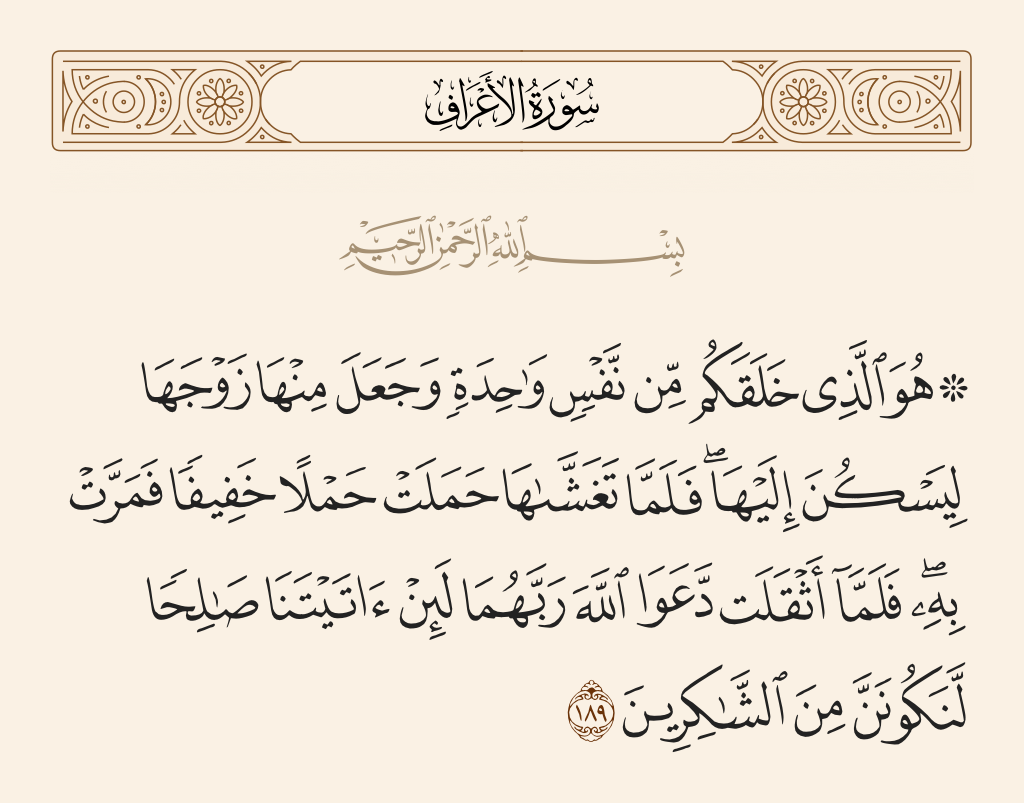 سُورَةُ الأَعْرَافِ
بِسْمِ ٱللَّهِ ٱلرَّحْمَٰنِ ٱلرَّحِيمِ
۞ هُوَ ٱلَّذِى خَلَقَكُم مِّن نَّفْسٍ وَٰحِدَةٍ وَجَعَلَ مِنْهَا زَوْجَهَا
لِيَسْكُنَ إِلَيْهَا ۖ فَلَمَّا تَغَشَّىٰهَا حَمَلَتْ حَمْلًا خَفِيفًا فَمَرَّتْ
بِهِۦ ۖ فَلَمَّآ أَثْقَلَت دَّعَوَا ٱللَّهَ رَبَّهُمَا لَئِنْ ءَاتَيْتَنَا صَٰلِحًا
لَّنَكُونَنَّ مِنَ ٱلشَّٰكِرِينَ ١٨٩